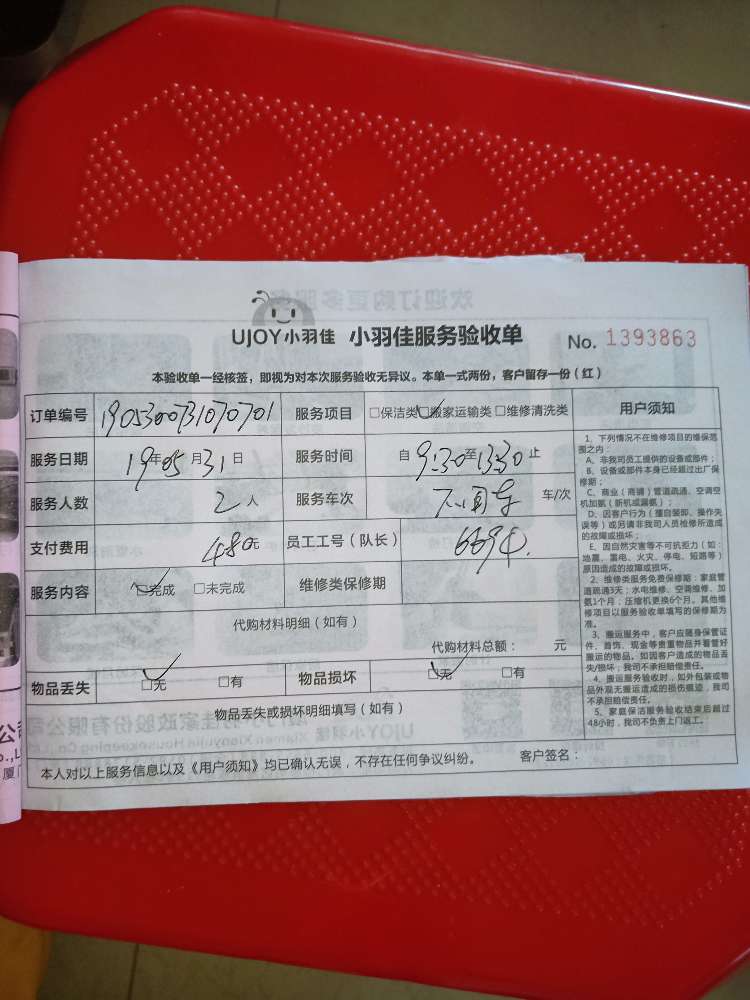 UJOY小羽佳 小羽佳服务验收单 No. 1393863
本验收单一经核签，即视为对本次服务验收无异议。本单一式两份，客户留存一份（红）
订单编号 1905300731070701 服务项目 □保洁类 ☑搬家运输类 □维修清洗类
服务日期 19年05月31日 服务时间 自9:30至13:30止
服务人数 2人 服务车次 车/次
支付费用 480元 员工工号（队长） 6694
服务内容 ☑完成 □未完成 维修类保修期
代购材料明细（如有）
代购材料总额： 元
物品丢失 ☑无 □有 物品损坏 ☑无 □有
物品丢失或损坏明细填写（如有）
本人对以上服务信息以及《用户须知》均已确认无误，不存在任何争议纠纷。 客户签名：
用户须知
1、下列情况不在维修项目的维保范
围之内：
A、非我司员工提供的设备或部件；
B、设备或部件本身已经超过出厂保
修期；
C、商业（商铺）管道疏通、空调空
机加氨（新机或漏氨）；
D、因客户行为（擅自装卸、操作失
误等）或另请非我司人员检修所造成
的故障或损坏；
E、因自然灾害等不可抗拒力（如：
地震、雷电、火灾、停电、短路等）
原因造成的故障或损坏。
2、维修类服务免费保修期：家庭管
道疏通3天；水电维修、空调维修、加
氨1个月；压缩机更换6个月。其他维
修项目以服务验收单填写的保修期为
准。
3、搬运服务中，客户应随身保管证
件、首饰、现金等贵重物品并看管好
搬运的物品。如因客户造成的物品丢
失/损坏，我司不承担赔偿责任。
4、搬运服务验收时，如外包装或物
品外观无搬运造成的损伤痕迹，我司不
承担赔偿责任。
5、家庭保洁服务验收结束后超过
48小时，我司不负责上门返工。